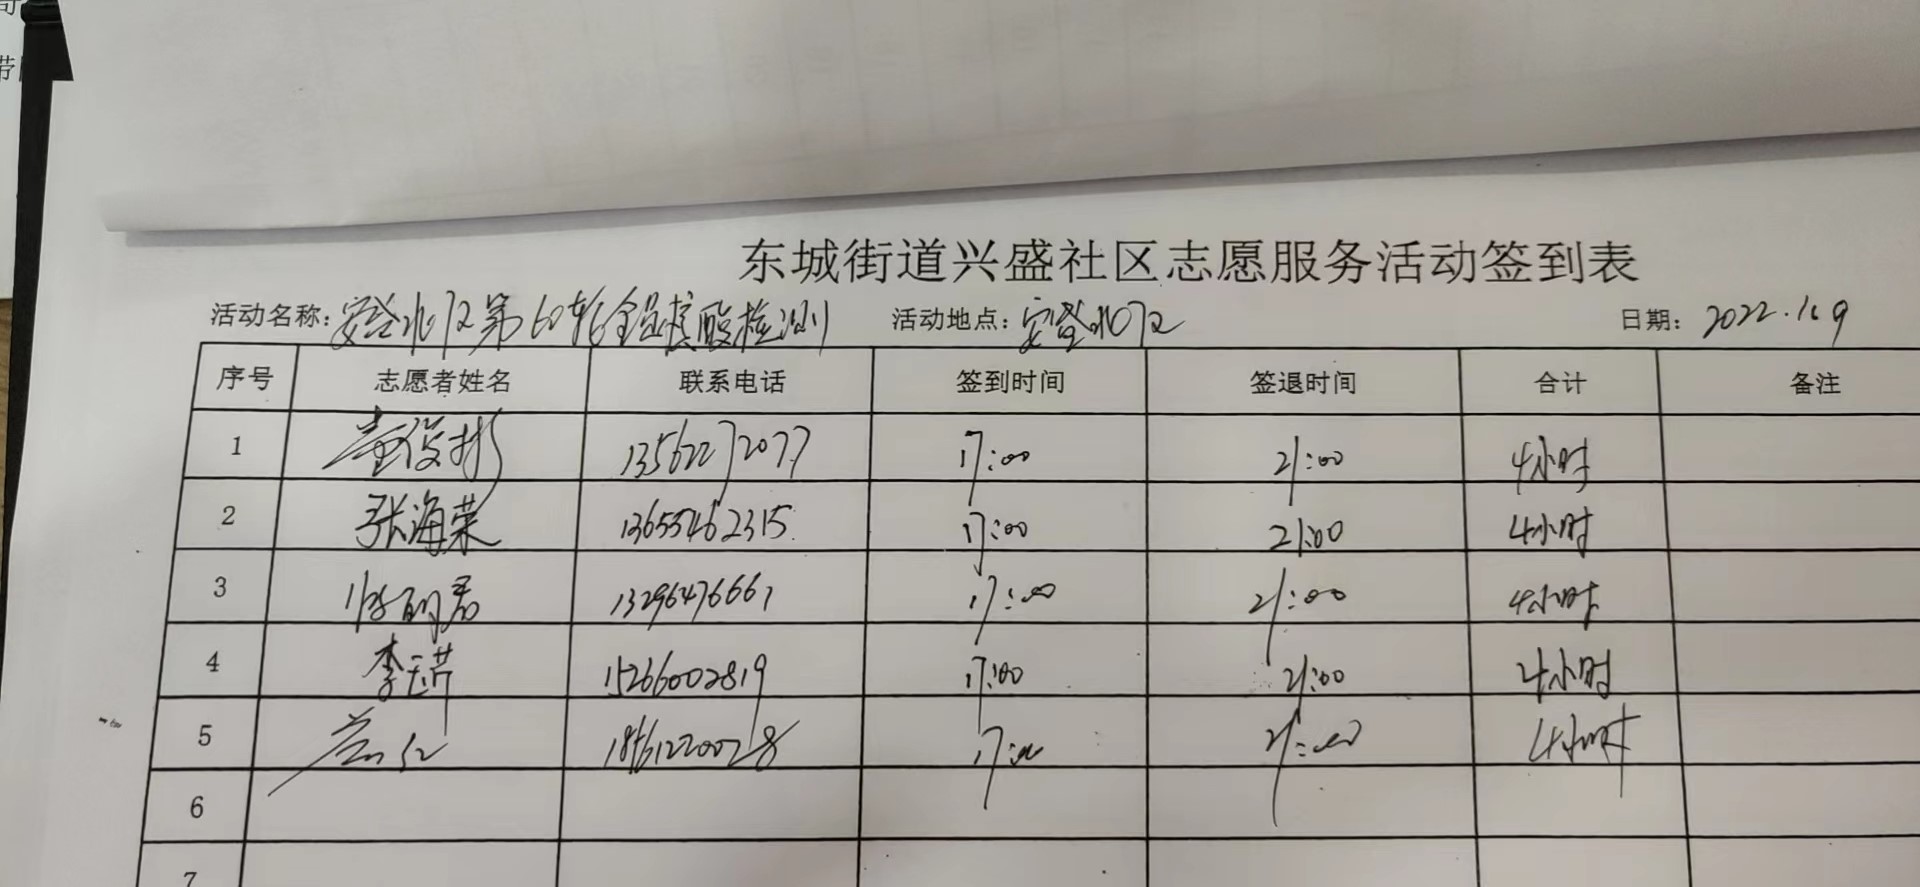 东城街道兴盛社区志愿服务活动签到表
活动名称：安登北区第60轮全员核酸检测 活动地点：安登北区 日期：2022.
序号 志愿者姓名 联系电话 签到时间 签退时间 合计 备注
1 董俊彬 13562272077 17:00 21:00 4小时
2 张海荣 13655462315 17:00 21:00 4小时
3 13296476661 17:00 21:00 4小时
4 李 15266002819 17:00 21:00 4小时
5 18561220028 17:00 21:00 4小时
6
7